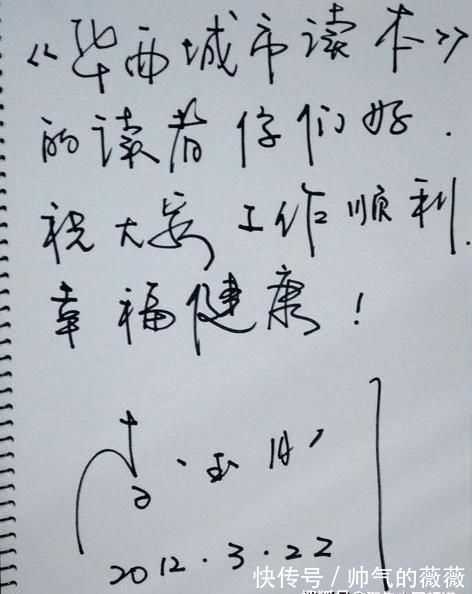 《华西城市读本》
的读者你们好.
祝大家工作顺利.
幸福健康!
2012.3.22
快传号 / 帅气的薇薇